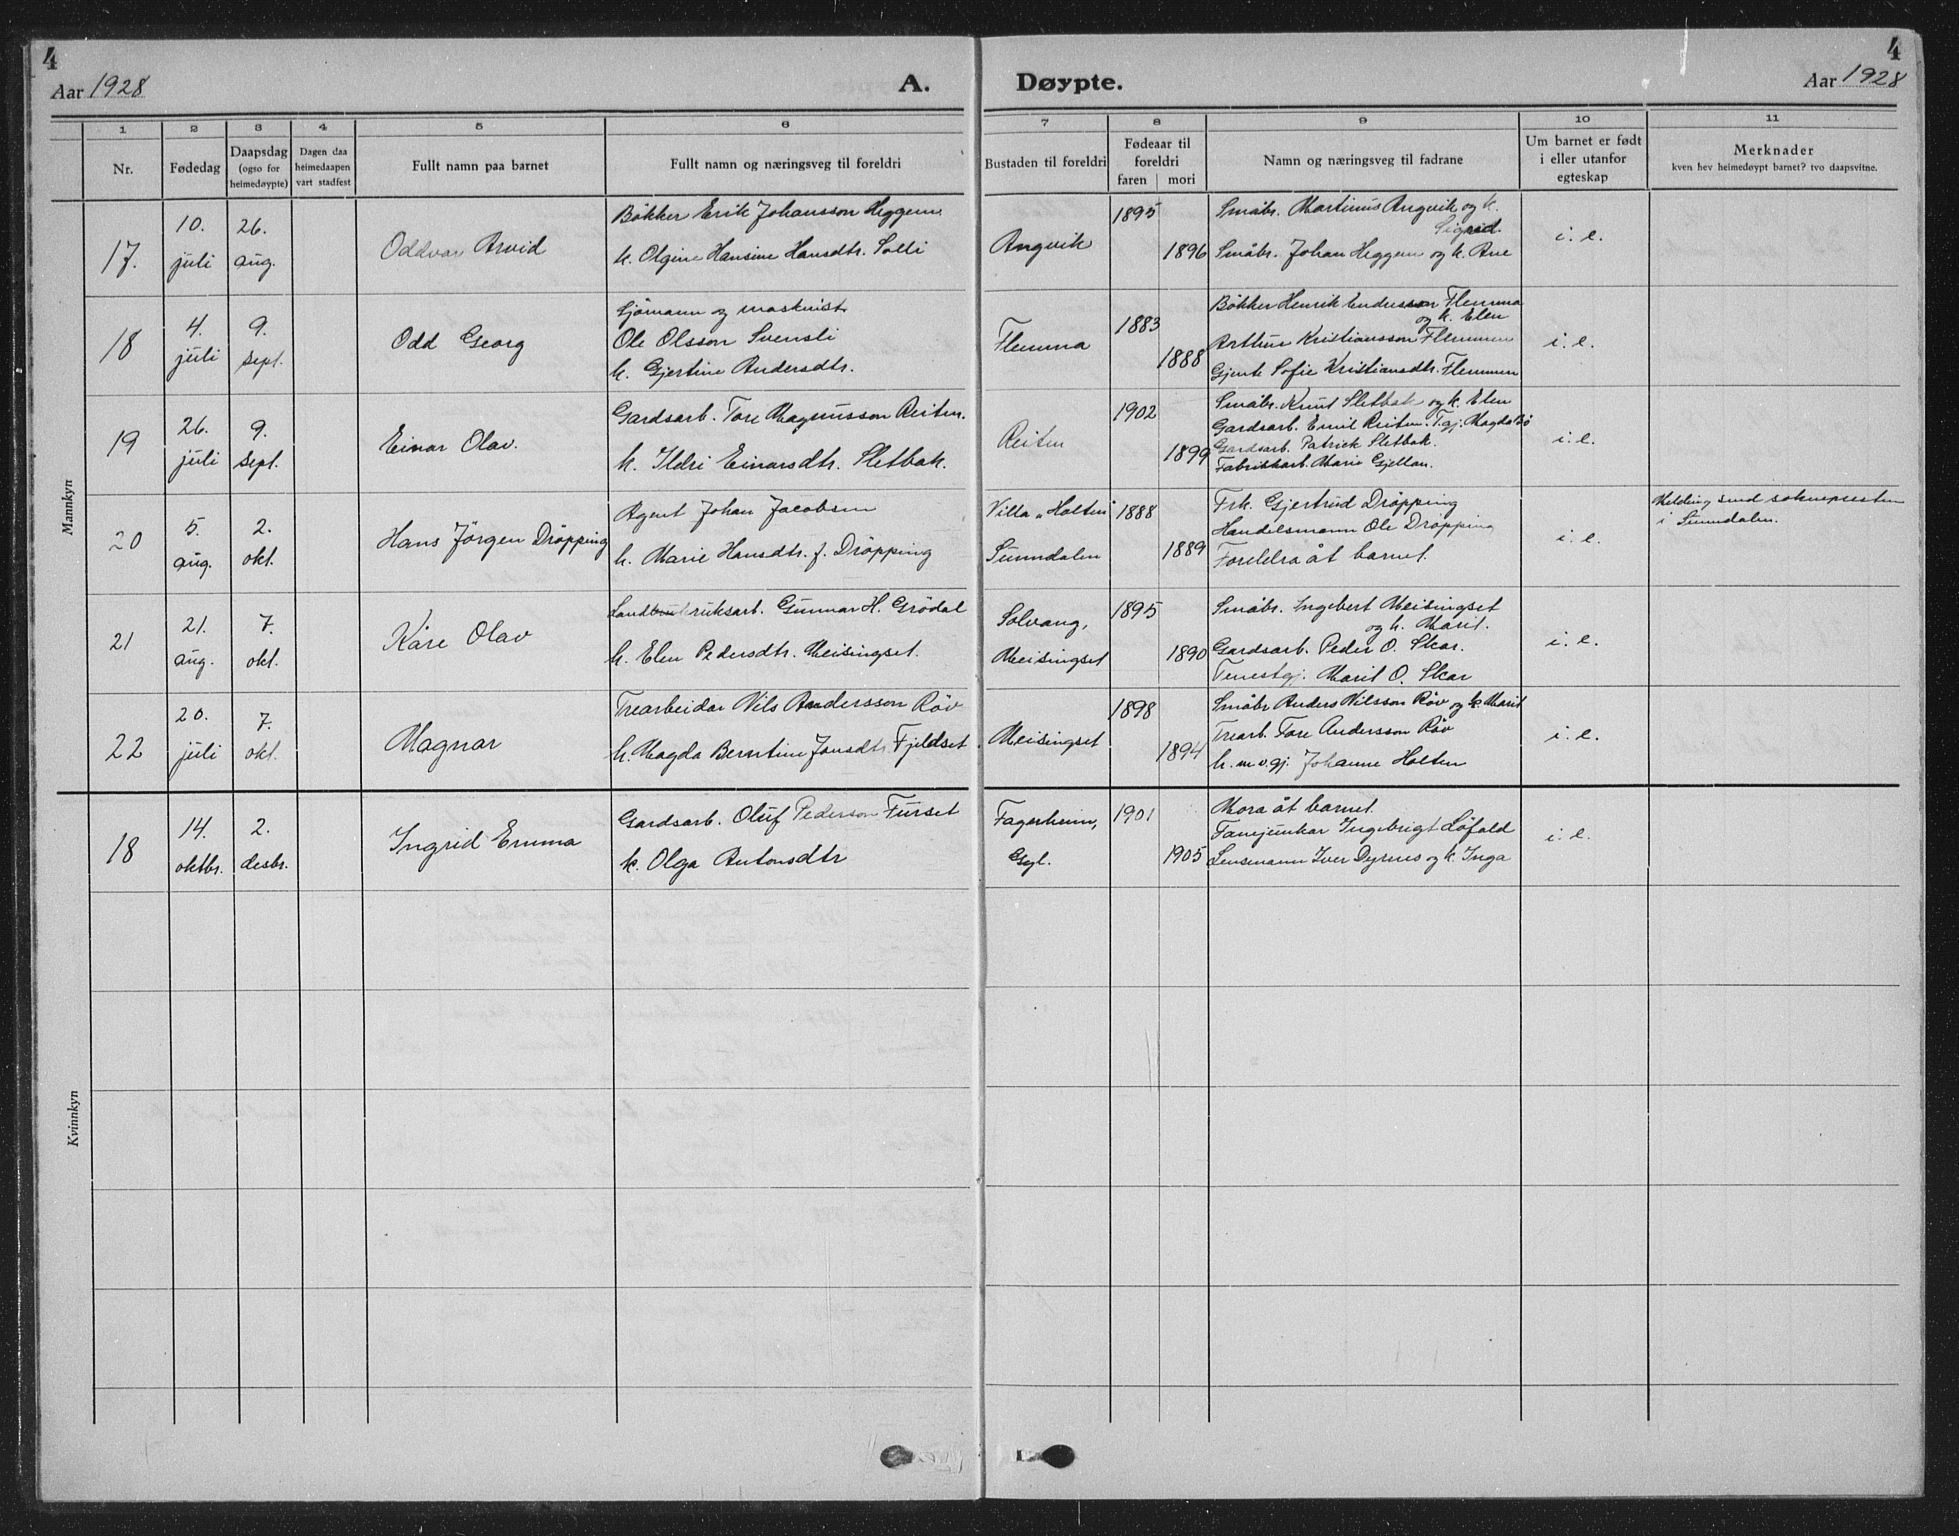 4
Aar 1928
A. Døypte.
4
Aar 1928
1 2 3 4 5 6 7 8 9 10 11
Nr.
Fødedag
Daapsdag
(ogso for
heimedøypte)
Dagen daa
heimedaapen
vart stadfest
Fullt namn paa barnet
Fullt namn og næringsveg til foreldri
Bustaden til foreldri
Fødeaar til
foreldri
faren mori
Namn og næringsveg til fadrane
Um barnet er født
i eller utanfor
egteskap
Merknader
kven hev heimedøypt barnet? tvo daapsvitne.
Mannkyn
17.
10.
juli
26.
aug.
Oddvar Arvid
Bøkker Erik Johansson Heggem
k. Olgine Hansine Hansdtr. Solli
Angvik
1895
1896
Småbr. Martinus Angvik og k.
Sigrid.
Småbr. Johan Heggem og k. Ane
i. e.
18
4.
juli
9.
sept.
Odd Georg
Sjömann og maskinist
Ole Olsson Svensli
k. Gjertine Andersdtr.
Flemma
1883
1888
Bökker Henrik Endresson Flemma
og k. Elen
Arthur Kristiansson Flemmen
Gjente Sofie Kristiansdtr. Flemmen
i. e.
19
26.
juli
9.
sept.
Einar Olav.
Gardsarb. Tore Magnusson Reiten.
k. Ildri Einarsdtr. Sletbak.
Reiten
1902
1899
Småbr. Knut Sletbak og k. Elen
Gardsarb. Emil Reiten. T.gj. Magda Bö
Gardsarb. Patrick Sletbak.
Fabrikkarb. Marie Gjellan.
i. e.
20
5.
aug.
2.
okt.
Hans Jörgen Dröpping
Agent Johan Jacobsen
k. Marie Hansdtr. f. Dröpping
Villa "Holten"
Sunndalen
1888
1889
Frk. Gjertrud Dröpping
Handelsmann Ole Dröpping
Foreldra åt barnet.
i. e.
Melding send soknepresten
i Sunndalen.
21
21.
aug.
7.
okt.
Kåre Olav
Landbruksarb. Gunnar H. Grödal
k. Elen Pedersdtr. Meisingset.
Solvang,
Meisingset
1895
1890
Småbr. Ingebert Meisingset
og k. Marit.
Gardsarb. Peder O. Skar.
Tenestgj. Marit O. Skar
i. e.
22
20.
juli
7.
okt.
Magnar
Trearbeidar Nils Andersson Röv
k. Magda Berntine Jonsdtr. Fjeldset
Meisingset
1898
1894
Småbr Anders Nilsson Röv og k. Marit
Trearb. Tore Andersson Röv
k. m. v. gj. Johanne Holten
i. e.
Kvinnkyn
18
14.
oktbr.
2.
desbr.
Ingrid Emma
Gardsarb. Oluf Pederson Furset
k. Olga Antonsdtr
Fagerheim,
Gyl.
1901
1905
Mora åt barnet.
Fanejunkar Ingebrigt Löfald
Lensmann Iver Dyrnes og k. Inga
i. e.